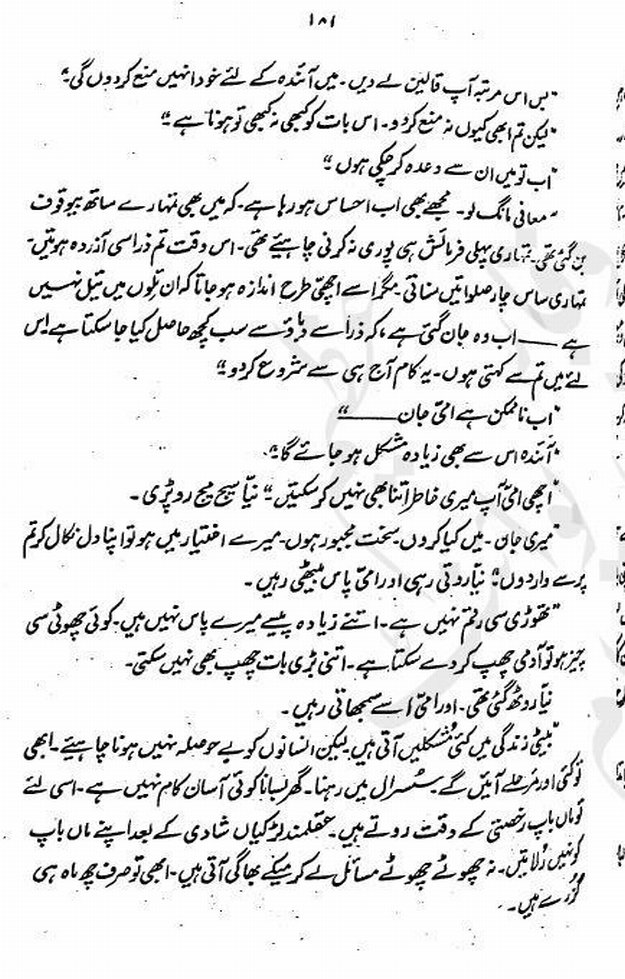 ۱۸۱
"بس اس مرتبہ آپ قالین لے دیں۔ میں آئندہ کے لئے خود انہیں منع کر دوں گی۔"
"لیکن تم ابھی کیوں نہ منع کر دو۔ اس بات کو کبھی نہ کبھی تو ہونا ہے۔"
"اب تو میں ان سے وعدہ کر چکی ہوں"
"معافی مانگ لو۔ مجھے بھی اب احساس ہو رہا ہے۔ کہ میں بھی تمہارے ساتھ بیوقوف
بن گئی تھی۔ تمہاری پہلی فرمائش ہی پوری نہ کرنی چاہیئے تھی۔ اس وقت تم ذرا سی آزردہ ہوتیں۔
تمہاری ساس چار صلواتیں سناتی۔ مگر اسے اچھی طرح اندازہ ہو جاتا کہ ان تِلوں میں تیل نہیں
ہے ــــ اب وہ جان گئی ہے، کہ ذرا سے دباؤ سے سب کچھ حاصل کیا جا سکتا ہے اس
لئے میں تم سے کہتی ہوں۔ یہ کام آج ہی سے شروع کر دو"
"اب ناممکن ہے امی جان ــــــ"
"آئندہ اس سے بھی زیادہ مشکل ہو جائے گا۔"
"اچھی امی آپ میری خاطر اتنا بھی نہیں کر سکتیں۔" نیا سچ مچ رو پڑی۔
"میری جان۔ میں کیا کروں۔ سخت مجبور ہوں۔ میرے اختیار میں ہو تو اپنا دل نکال کر تم
پر سے وار دوں" نیا روتی رہی اور امی پاس بیٹھی رہیں۔
"تھوڑی سی رقم نہیں ہے۔ اتنے زیادہ پیسے میرے پاس نہیں ہیں۔ کوئی چھوٹی سی
چیز ہو تو آدمی چھپ کر دے سکتا ہے۔ اتنی بڑی بات چھپ بھی نہیں سکتی۔
نیا روٹھ گئی تھی۔ اور امی اسے سمجھاتی رہیں۔
"بیٹی زندگی میں کئی مُشکلیں آتی ہیں لیکن انسانوں کو بے حوصلہ نہیں ہونا چاہیئے۔ ابھی
تو کئی اور مرحلے آئیں گے۔ سُسرال میں رہنا۔ گھر بسانا کوئی آسان کام نہیں ہے۔ اسی لئے
تو ماں باپ رخصتی کے وقت روتے ہیں۔ عقلمند لڑکیاں شادی کے بعد اپنے ماں باپ
کو نہیں رُلاتیں۔ نہ چھوٹے چھوٹے مسائل لے کر میکے بھاگی آتی ہیں۔ ابھی تو صرف چھ ماہ ہی
گُزرے ہیں۔